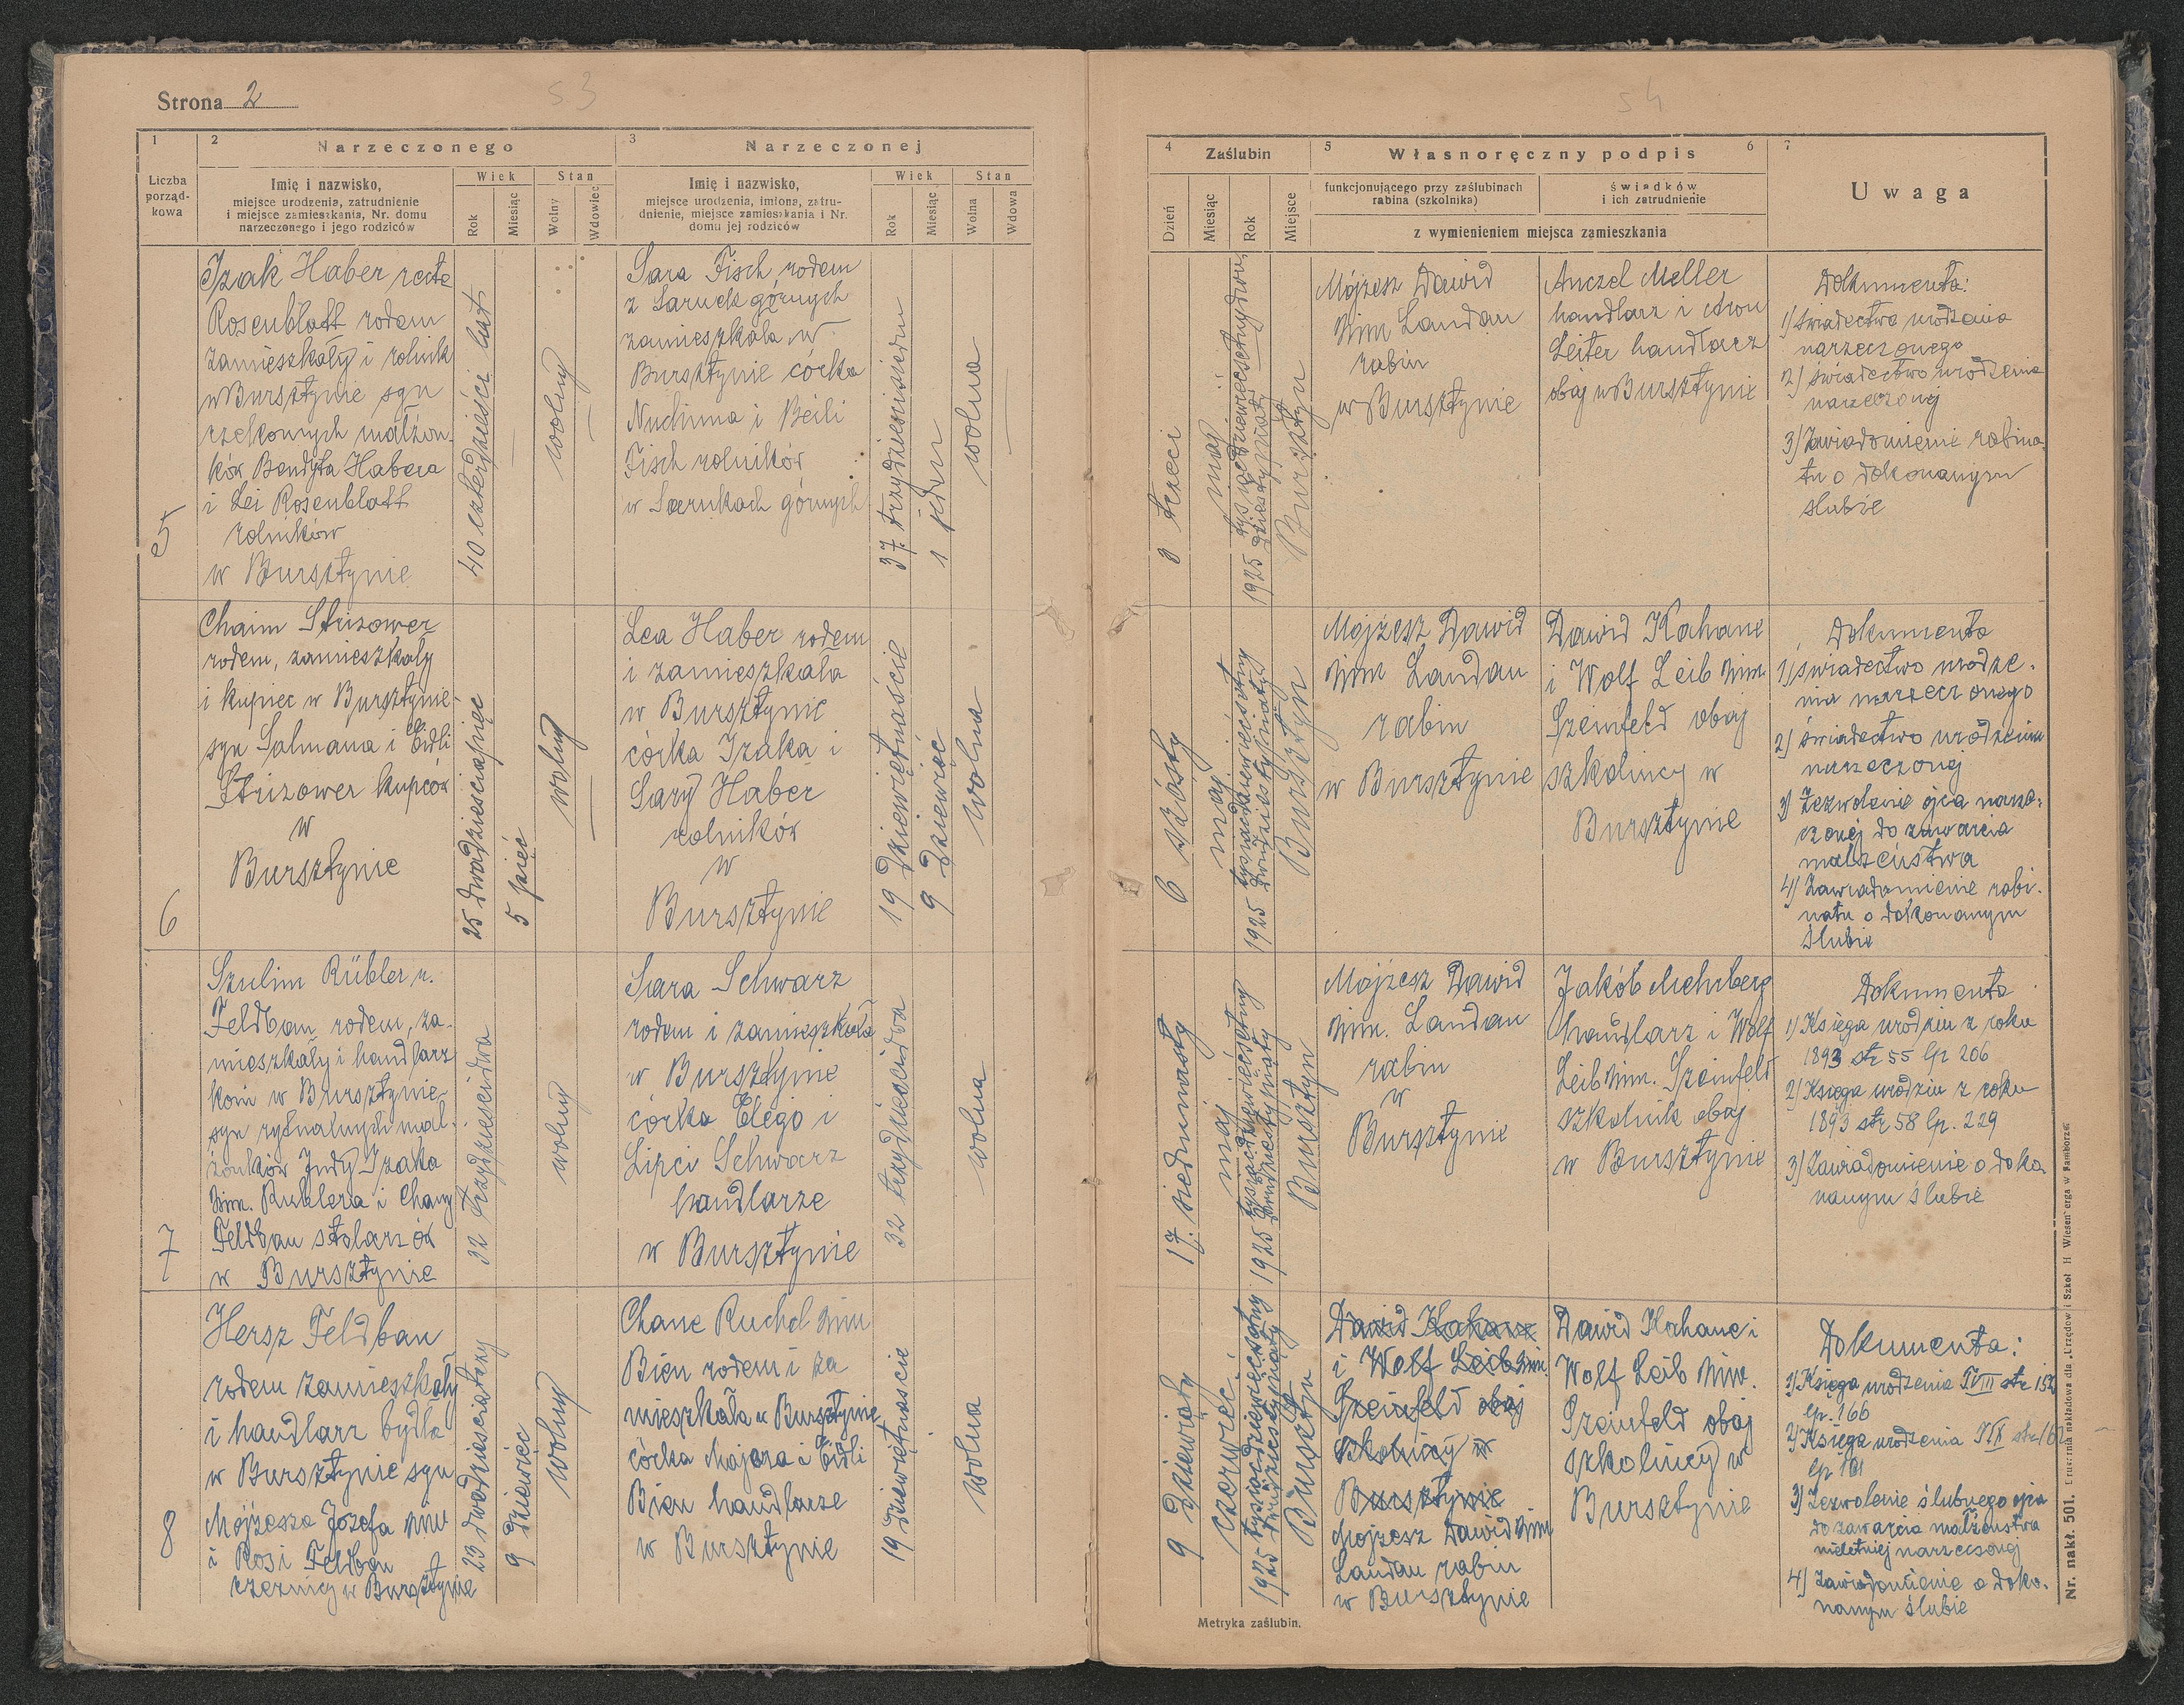 Strona 2
53
54
1
2
Narzeczonego
3
Narzeczonej
Liczba
porząd-
kowa
Imię i nazwisko,
miejsce urodzenia, zatrudnienie
i miejsce zamieszkania, Nr. domu
narzeczonego i jego rodziców
Wiek
Stan
Rok
Miesiąc
Wolny
Wdowiec
Imię i nazwisko,
miejsce urodzenia, imiona, zatru-
dnienie, miejsce zamieszkania i Nr.
domu jej rodziców
Wiek
Stan
Rok
Miesiąc
Wolna
Wdowa
4
Zaślubin
5
Własnoręczny podpis
6
7
Dzień
Miesiąc
Rok
Miejsce
funkcjonującego przy zaślubinach
rabina (szkolnika)
świadków
i ich zatrudnienie
z wymienieniem miejsca zamieszkania
Uwaga
5
Izak Haber recte
Rosenblatt rodem
zamieszkały i rolnik
w Bursztynie syn
rzekomych małżon-
ków Bendyta Habera
i Lei Rosenblatt
rolników
w Bursztynie
40 czterdzieści lat
wolny
Sara Fisch rodem
z Sarnek górnych
zamieszkała w
Bursztynie córka
Nuchima i Beili
Fisch rolników
w Sarnkach górnych
37 trzydzieścisiedm
1 jeden
wolna
3 trzeci
maj
1925 tysiącdziewięćsetnydwu
dziestypiąty
Bursztyn
Mojżesz Dawid
Nim Landau
rabin
w Bursztynie
Anczel Meller
handlarz i Aron
Leiter handlarz
obaj w Bursztynie
Dokumenta:
1) świadectwo urodzenia
narzeczonego
2) świadectwo urodzenia
narzeczonej
3) Zawiadomienie rabina-
tu o dokonanym
ślubie
6
Chaim Strizower
rodem, zamieszkały
i kupiec w Bursztynie
syn Salmana i Eidli
Strizower kupców
w
Bursztynie
25 dwadzieściapięć
5 pięć
wolny
Lea Haber rodem
i zamieszkała
w Bursztynie
córka Izaka i
Sary Haber
rolników
w
Bursztynie
19 dziewiętnaście
9 dziewięć
wolna
6 szósty
maj
1925 tysiącdziewięćsetny
dwudziestypiąty
Bursztyn
Mojżesz Dawid
Nim Landau
rabin
w Bursztynie
Dawid Kahane
i Wolf Leib Nim.
Szeinfeld obaj
szkolnicy w
Bursztynie
Dokumenta
1) świadectwo urodze-
nia narzeczonego
2) świadectwo urodzenia
narzeczonej
3) Zezwolenie ojca narze-
czonej do zawarcia
małżeństwa
4) Zawiadomienie rabi-
natu o dokonanym
ślubie
7
Szulim Rübler r.
Feldbau rodem, za-
mieszkały i handlarz
koni w Bursztynie
syn rytualnych mał-
żonków Judy Izaka
Nim. Rublera i Chany
Feldbau stolarzów
w Bursztynie
32 trzydzieścidwa
wolny
Sara Schwarz
rodem i zamieszkała
w Bursztynie
córka Elego i
Lipci Schwarz
handlarze
w Bursztynie
32 trzydzieścidwa
wolna
17. siedmnasty
maj
1925 tysiącdziewięćsetny
dwudziestypiąty
Bursztyn
Mojżesz Dawid
Nim. Landau
rabin
w
Bursztynie
Jakób Mehrberg
handlarz i Wolf
Leib Nim. Szeinfeld
szkolnik obaj
w Bursztynie
Dokumenta
1) Księga urodzin z roku
1893 str 55 lp 206
2) Księga urodzin z roku
1893 str 58 lp. 229
3) Zawiadomienie o doko
nanym ślubie
8
Hersz Feldbau
rodem zamieszkały
i handlarz bydła
w Bursztynie syn
Mojżesza Józefa Nim
i Rosi Feldbau
rzeznicy w Bursztynie
23 dwadzieściatrzy
9 dziewięć
wolny
Chane Ruchel Nim
Bien rodem i za
mieszkała w Bursztynie
córka Majera i Eidli
Bien handlarze
w Bursztynie
19 dziewiętnaście
wolna
9 dziewiąty
czerwiec
1925 tysiącdziewięćsetny
dwudziestypiąty
Bursztyn
Dawid Kahane
i Wolf Leib Nim.
Szeinfeld obaj
szkolnicy w
Bursztynie
Mojżesz Dawid Nim
Landau rabin
w Bursztynie
Dawid Kahane i
Wolf Leib Nim.
Szeinfeld obaj
szkolnicy w
Bursztynie
Dokumenta:
1) Księga urodzenia str 152
lp. 166
2) Księga urodzenia
lp 101
3) Zezwolenie ślubnego ojca
do zawarcia małżeństwa
nieletniej narzeczonej
4) Zawiadomienie o doko-
nanym ślubie
Metryka zaślubin.
Nr. nakł. 501. Drukarnia nakładowa dla Urzędów i Szkół H Wiesenberga w Samborze